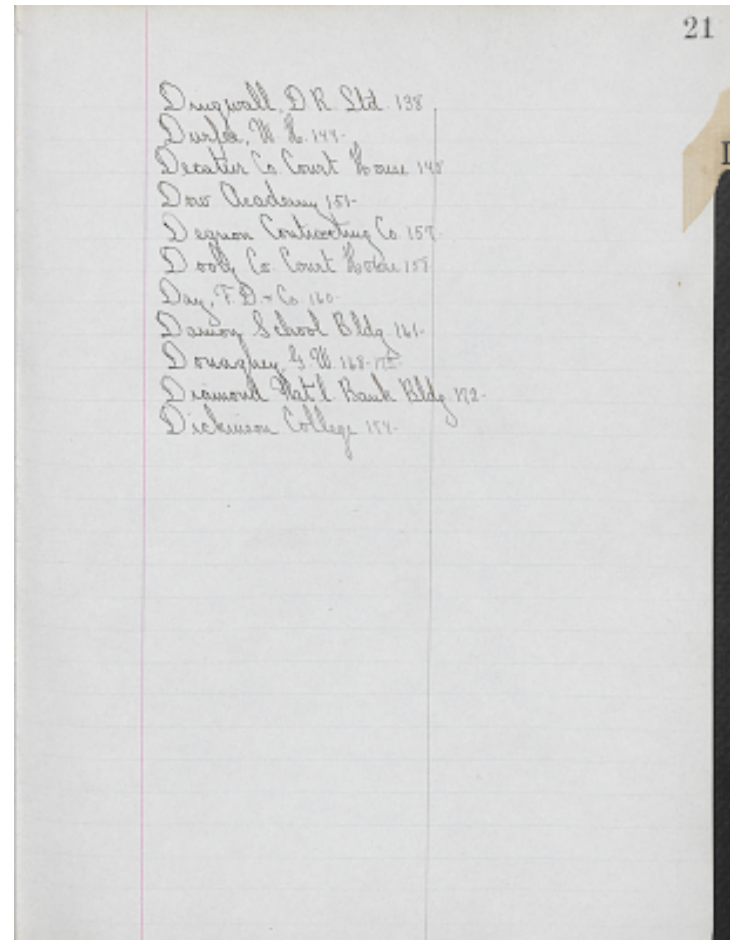 21
Dingwall, D R. Ltd. 138
Durfee, W. H. 144-
Decatur Co. Court House 148
Dow Academy 151-
Degnon Contracting Co. 157-
Dooly Co. Court House
Day, F. D. & Co. 160-
Damon School Bldg. 161-
Donaghey, G. W. 168-
Diamond Nat'l Bank Bldg. 172-
Dickinson College
D